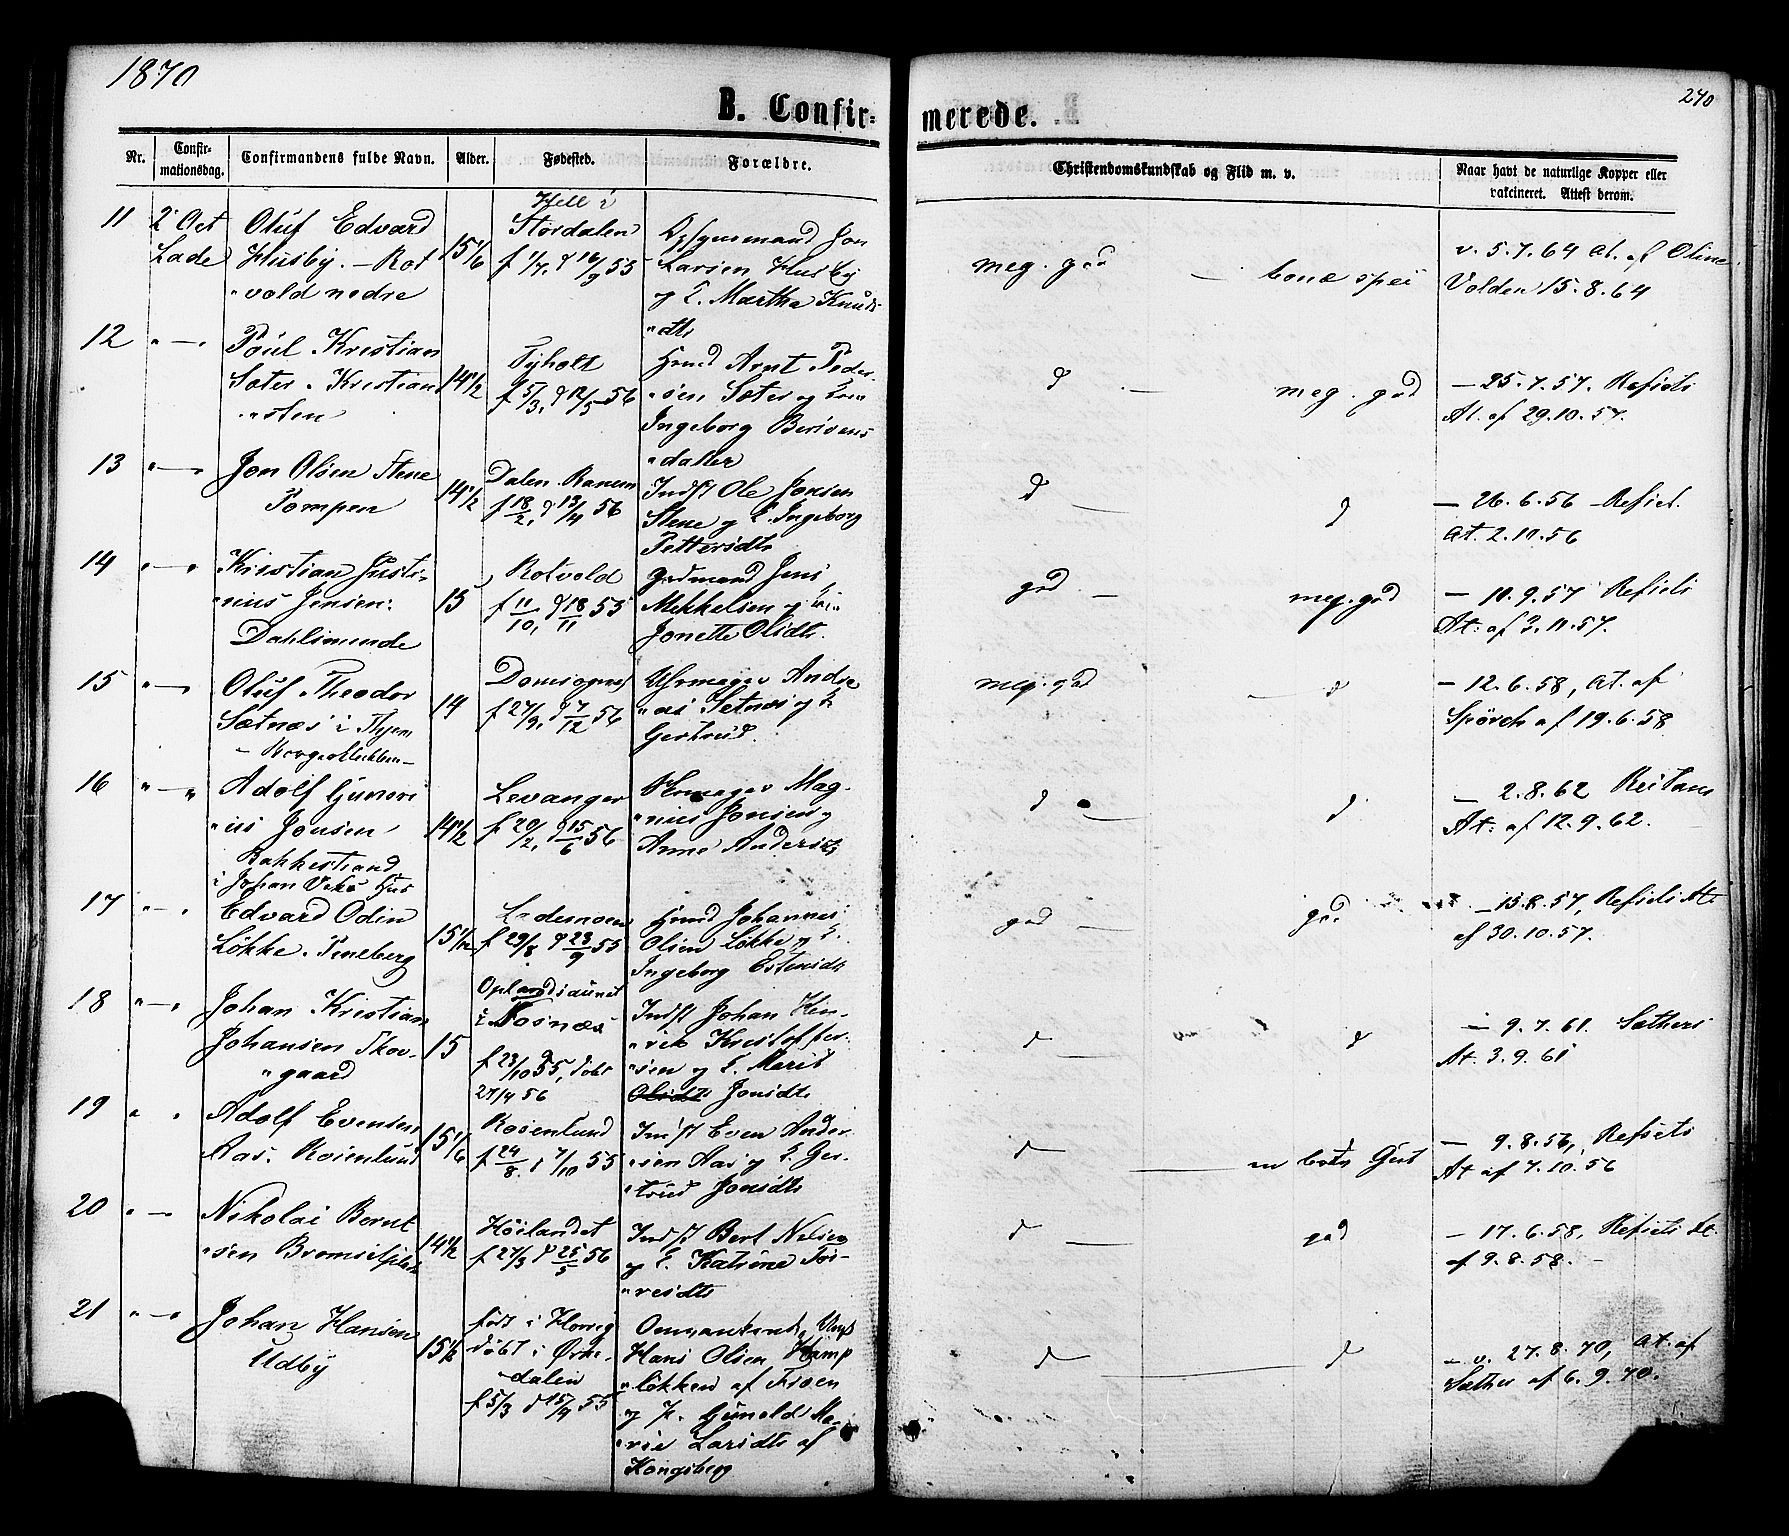 1870
240
B. Confir- merede.
Nr.
Confir-
mationsdag.
Confirmandens fulde Navn.
Alder.
Fødested.
Forældre.
Christendomskundskab og Flid m. v.
Naar havt de naturlige Kopper eller
vakcineret. Attest derom.
11
2 Oct
Lade
Oluf Edvard
Husby. – Rot
"vold nedre
15 1/6
Hell i
Størdalen
f 1/7, d 16/9 55
Jon
Larsen Husby
og E. Martha Knuds
"dtr
meg. god — bonæ spei
v. 5.7.64 At. af Oline
Volden 15.8.64
12
" — "
Poul Kristian
Sæter. Kristian
"sten
14 1/2
Tyholt
f 5/3, d 12/5 56
Hmd Arnt Peder
"sen Sæter og
Ingeborg
"datter
d — meg. god
— 25.7.57. Refsets
At. af 29.10.57.
13
" — "
Jon Olsen Stene
Pompen
14 1/2
Dalen. Ranem
f 18/2, d 13/4 56
Indst Ole Jonsen
Stene og E. Ingeborg
Pettersdtr
d — d
— 26.6.56 Refset.
At. 2.10.56
14
" — "
Kristian Justi-
"nius Jensen.
Dahlsminde
15
Rotvold
f 11/10, d 18/11 55
Jens
Mekkelsen og
Jonette Olsdtr.
god — meg. god
— 10.9.57 Refsets
At: af 3.11.57.
15
" — "
Oluf Theodor
Sætnæs i Thjem
14
f 27/9, d 7/12 56
Uhrmager Andre
"as Setnæs og E
Gertrud.
meg. god — d
— 12.6.58, At. af
Spørck af 19.6.58
16
" — "
Adolf Guneri
"us Jonsen
Bakkestrand
i Johan Vekos Hus
14 1/2
Levanger
f 20/2, d 15/6 56
Uhrmager Mag-
"nus Jonsen og
Anne Andersdtr
d — d
— 2.8.62 Reitans
At: af 12.9.62.
17
" — "
Edvard Odin
Løkke. Pineberg
15 1/12
Lademoen
f 29/8 d 23/9 55
Hmd Johannes
Olsen Løkke og E.
Ingeborg Estensdtr
god — god
— 13.8.57, Refsets At:
af 30.10.57.
18
" — "
Johan Kristian
Johansen Skov-
"gaard
15
i Fosnæs
f 23/10 55, døbt
27/4 56
Indst Johan Hen-
"rik Kristoffer-
"sen og E. Marit
Olsdtr Jonsdtr
d — d
— 9.7.61. Sæthers
At. 3.9.61
19
" "
Adolf Evensen
Aas. Rosenlund
15 1/6
Rosenlund
f 24/8. d 7/10 55
Indst Even Ander
"sen Aas og E. Ger-
"trud Jonsdtr
d —
— 9.8.56, Refsets
At af 7.10.56
20
" — "
Nikolai Bernt
"sen
14 1/2
Høilandet
f 27/3 d 25/5 56
Indst Bert Nilsen
og E. Katrine Tor-
"resdtr
d — god
— 17.6.58, Refsets At.
af 9.8.58. –
21
" — "
Johan Hansen
Udby
15 1/2
født i Horrig
døbt i Orke-
"dalen
f 5/3 d 15/4 55
Hans Olsen Kamp
"løkken af Froen
og P. Gunild Ma-
"rie Larsdtr af
Kongsberg
d — d
— v. 27.8.70, At. af
Sæther af 6.9.70.